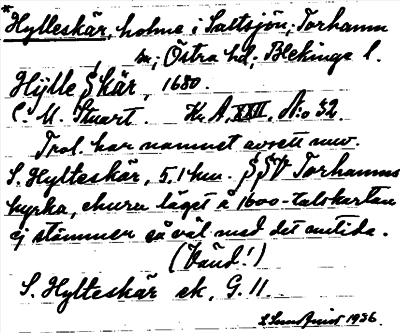 *Hylleskär, holme i Saltsjön; Torhamn
sn; Östra hd; Blekinge l.
Hÿlle Skär, 1680.
C. M. Stuart. Kr. A. XXII, N:o 32.
Trol. har namnet avsett nuv.
S. Hylteskär, 5.1 km. SSV Torhamns
kyrka, ehuru läget å 1600-talskartan
ej stämmer så väl med det nutida.
(Vänd!)
S. Hylteskär ek. G. 11.
1936.